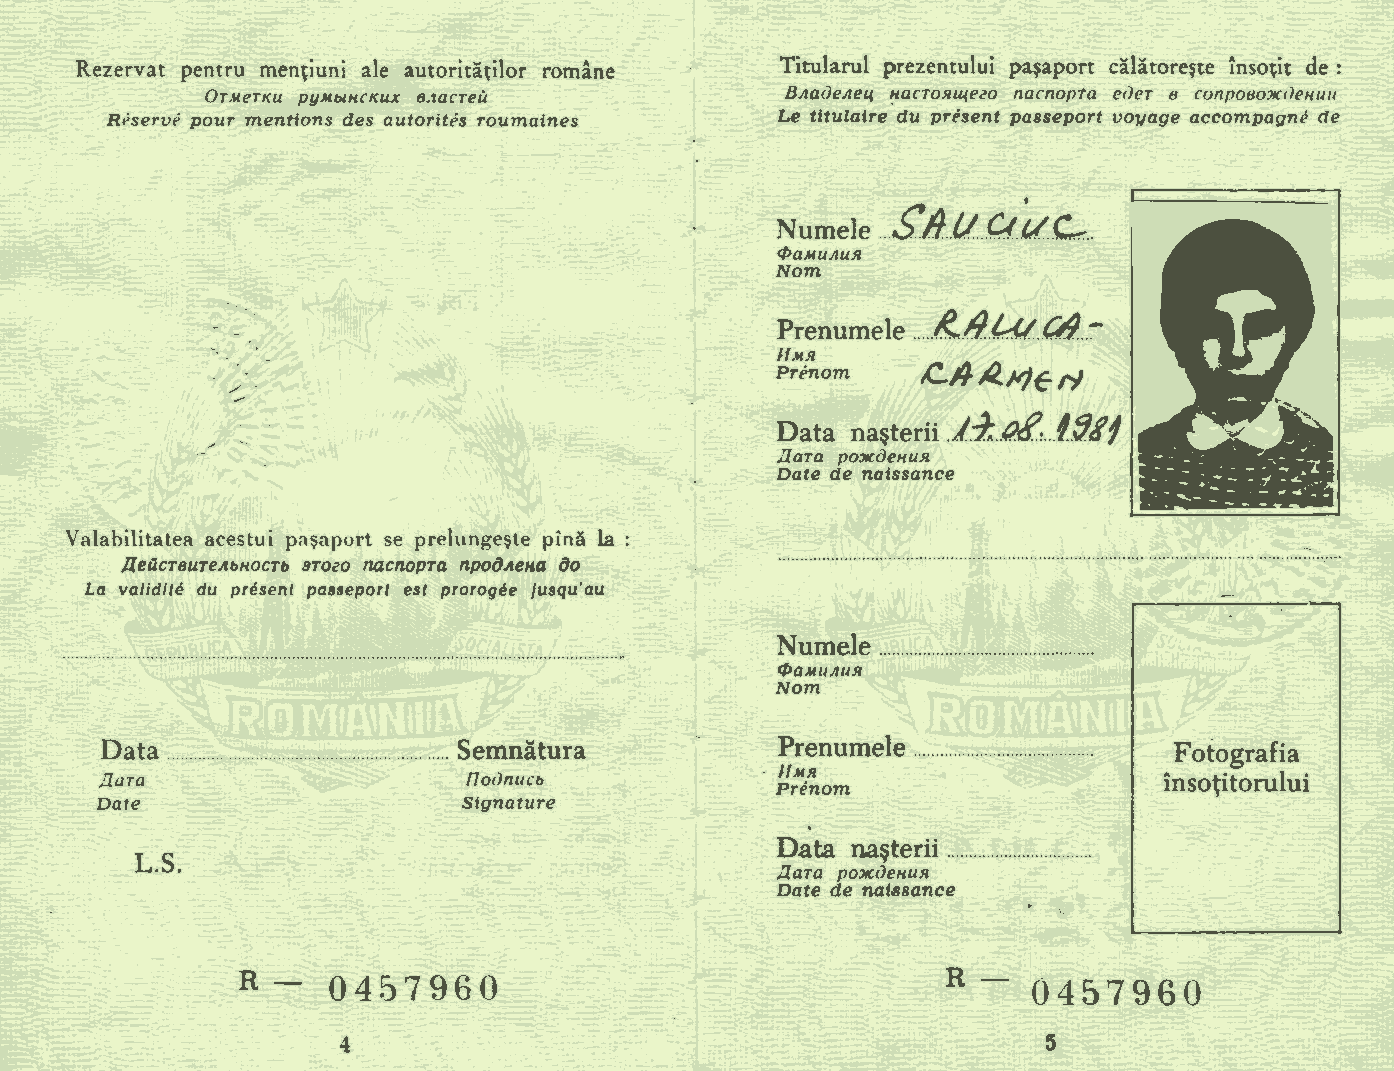 Rezervat pentru mențiuni ale autorităților române
Отметки румынских властей
Réservé pour mentions des autorités roumaines
Valabilitatea acestui pașaport se prelungește pînă la :
Действительность этого паспорта продлена до
La validité du présent passeport est prorogée jusqu'au
REPUBLICA SOCIALISTA
ROMANIA
Data Semnătura
Дата Подпись
Date Signature
L.S.
R — 0457960
4
Titularul prezentului pașaport călătorește însoțit de :
Владелец настоящего паспорта едет в сопровождении
Le titulaire du présent passeport voyage accompagné de
Numele SAUCIUC
Фамилия
Nom
Prenumele RALUCA-
Имя
Prénom CARMEN
Data nașterii 17.08.1981
Дата рождения
Date de naissance
Numele
Фамилия
Nom
ROMANIA
Prenumele
Имя
Prénom
Fotografia
însoțitorului
Data nașterii
Дата рождения
Date de naissance
R — 0457960
5